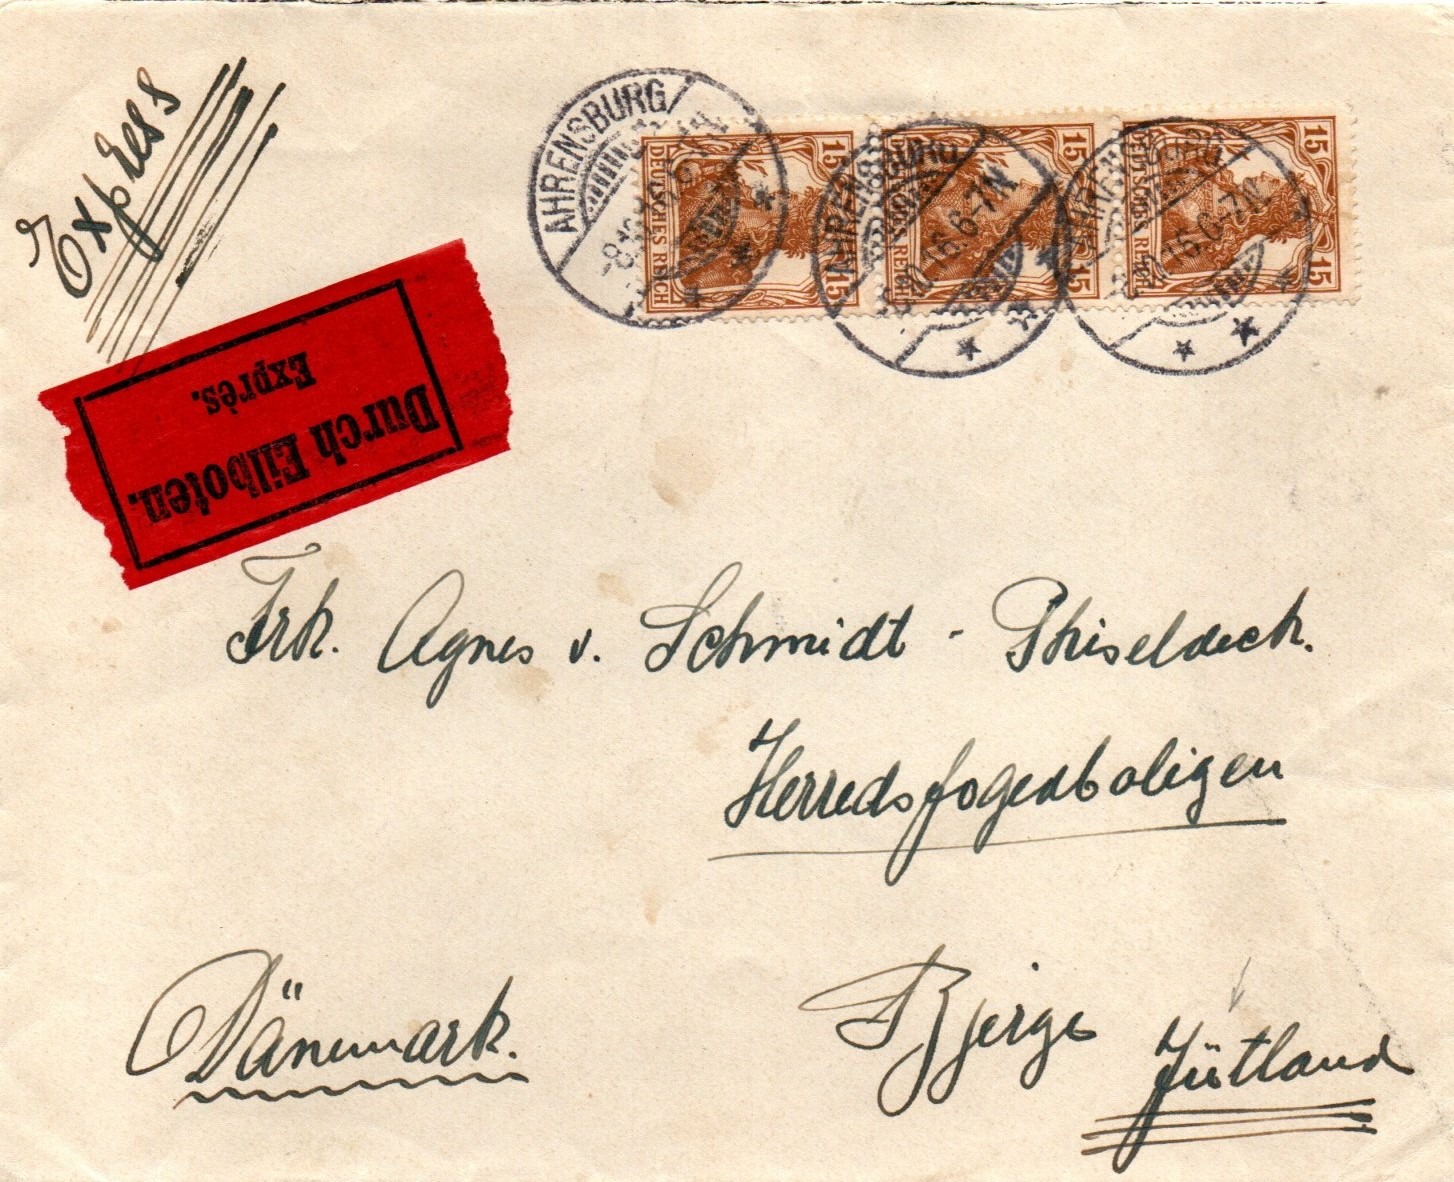 Express
AHRENSBURG
15 15 15
DEUTSCHES REICH
DEUTSCHES REICH
DEUTSCHES REICH
15 15 15
AHRENSBURG
6-7N
AHRENSBURG
6-7N
Durch Eilboten.
Exprès.
Frk. Agnes v. Schmidt - Phiseldeck.
Herredsfogedboligen
Bjerge
Dänemark.
Jütland